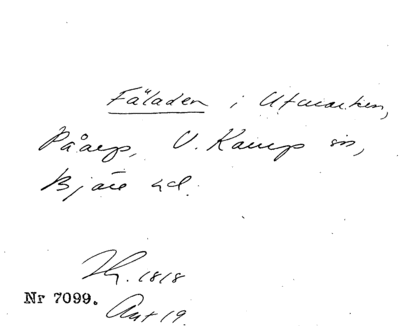 Fäladen i Utmarken,
Påarp, V. Karup sn,
Bjäre hd.
Th. 1818
Nr 7099.
Ant 19